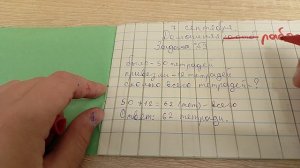 7 сентября.
Домашняя рабо
Задача №3
Было - 50 тетрадей
привезли - 12 тетрадей
Сколько всего тетрадей?
50 + 12 = 62 (тет) - всего
Ответ: 62 тетради.